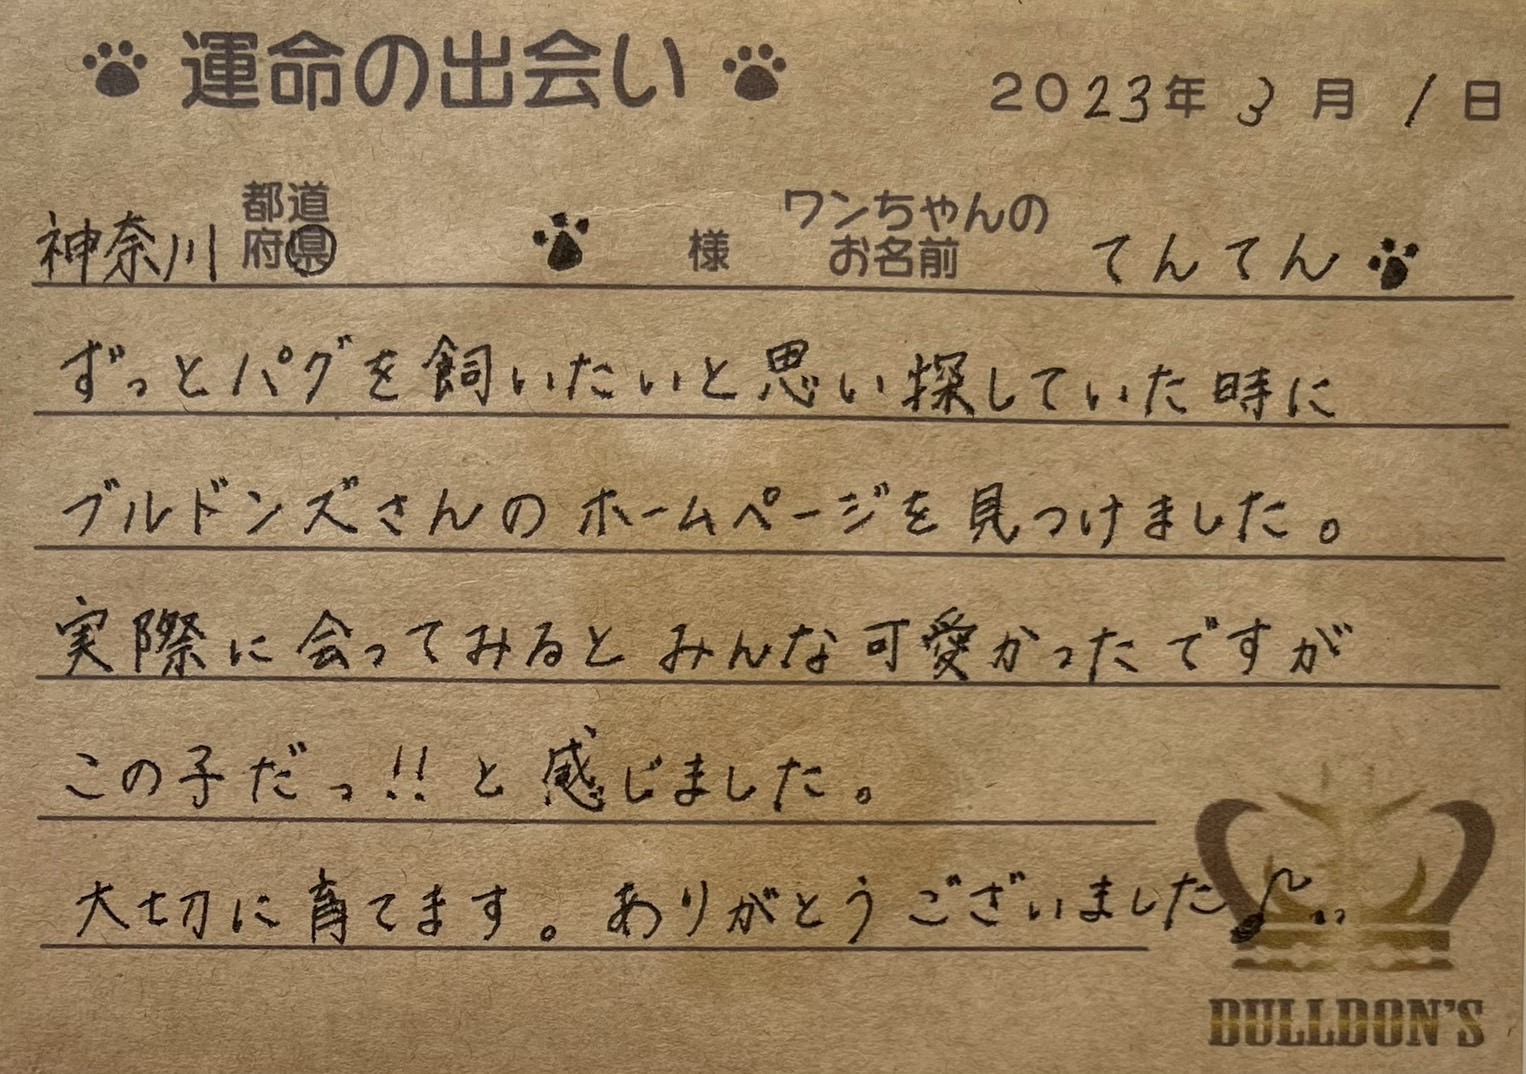 運命の出会い 2023年 3月 1日
神奈川 都道府県 様 ワンちゃんのお名前 てんてん
ずっとパグを飼いたいと思い探していた時に
ブルドンズさんのホームページを見つけました。
実際に会ってみるとみんな可愛かったですが
この子だっ!!と感じました。
大切に育てます。ありがとうございました♪..
BULLDON'S